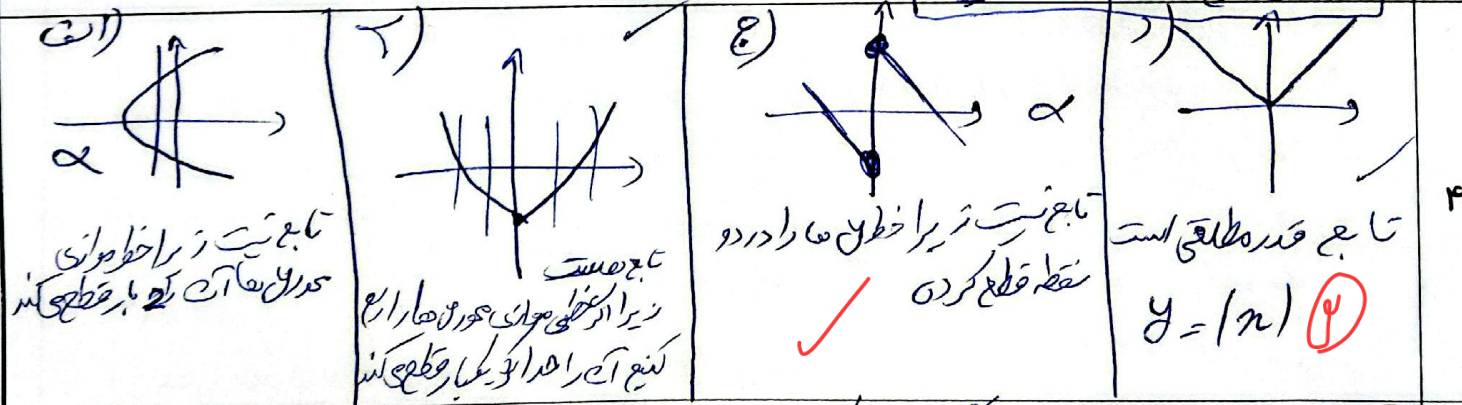 الف)
تابع نیست زیرا خط موازی
محور yها آن را 2 بار قطع می‌کند
ب)
تابع هست
زیرا اگر خطی موازی محور yها رسم
کنیم آن را حداکثر یکبار قطع می‌کند
ج)
تابع نیست زیرا خط yها را در دو
نقطه قطع کرده
د)
تابع قدر مطلقی است
y = |x|
۲
۴